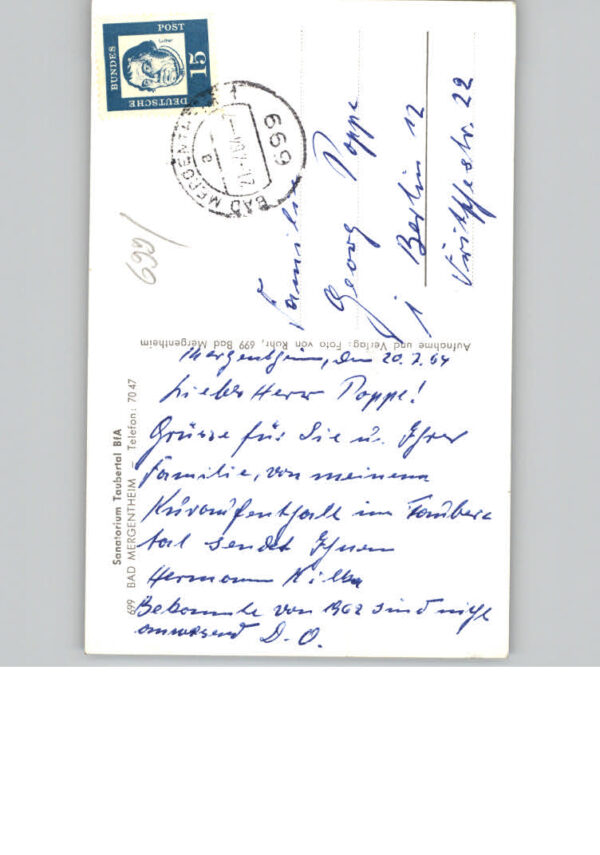 DEUTSCHE
BUNDES
POST
15
BAD MERGENTHEIM
669
21.7.64
699/
Familie
Georg Poppe
1 Berlin 12
22
Aufnahme und Verlag: Foto von Ruhr, 699 Bad Mergentheim
Sanatorium Taubertal BfA
699 BAD MERGENTHEIM – Telefon: 7047
Mergentheim, den 20.7.64
Lieber Herr Poppe!
Grüsse für Sie u. Ihrer
Familie, von meinem
Kuraufenthalt im Tauber
tal sendet Ihnen
Hermann
Bekannte von 1962 sind nicht
anwesend D.O.